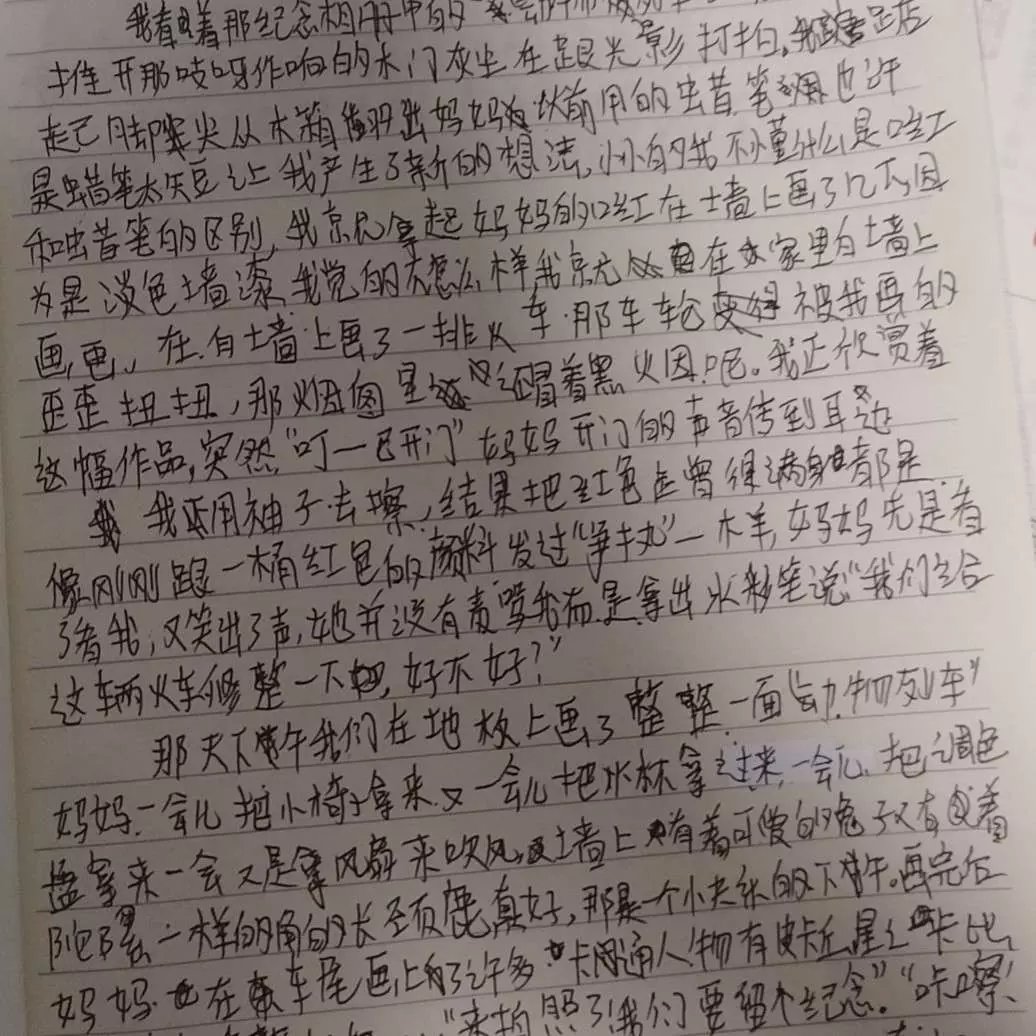 我看着那纪念相册中的
推开那吱呀作响的木门灰尘在跟光影打拍,我踮
起脚尖从木箱翻出妈妈以前用的蜡笔也许
是蜡笔太矢豆让我产生了新的想法,小小的我不懂什么是口红
和蜡笔的区别,我就拿起妈妈的口红在墙上画了几下,因
为是淡色墙漆,我觉的不怎么样,我就在家里白墙上
画,画,在白墙上画了一排火车.那车轮被我画的
歪歪扭扭,那烟囱里还冒着黑火因呢。我正欣赏着
这幅作品,突然“叮一已开门”妈妈开门的声音传到耳边
我用袖子去擦,结果把红色蹭得满身都是
像刚刚跟一桶红色的颜料发过“争执”一样,妈妈先是看
了看我,又笑出了声,她并没有责骂我而是拿出水彩笔说“我们给
这辆火车修整一下,好不好?”
那天下午我们在地板上画了整整一面“动物列车”
妈妈一会儿把小椅子拿来又一会儿把水杯拿过来,一会儿把调色
盘拿来一会又是拿风扇来吹风,墙上有着可爱的兔子又有着
鸵鸟一样的角的长颈鹿真好,那是一个小夹杂的下午。画完后
妈妈也在车尾画上了许多卡通人物有皮卡丘,星之卡比,
“来拍照了!我们要留个纪念”“咔嚓!